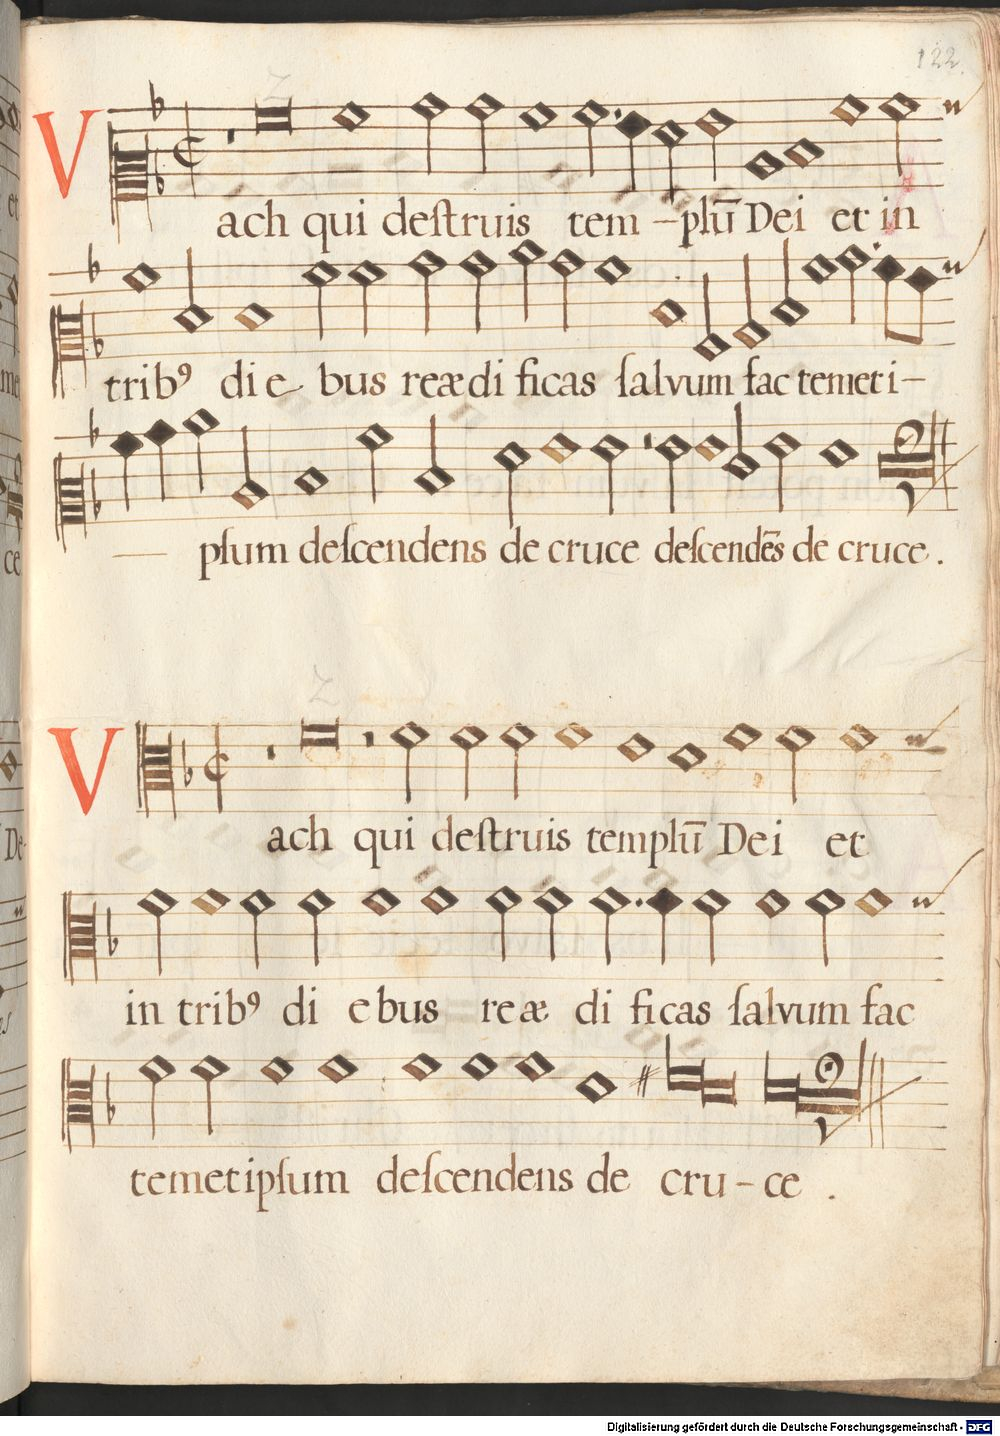 122.
2
V
ach qui destruis tem-plū Dei et in
tribꝰ die bus reædi ficas salvum fac temeti-
— psum descendens de cruce descendēs de cruce.
2
V
ach qui destruis templū Dei et
in tribꝰ di ebus reæ di ficas salvum fac
temetipsum descendens de cru-ce.
Digitalisierung gefördert durch die Deutsche Forschungsgemeinschaft - DFG